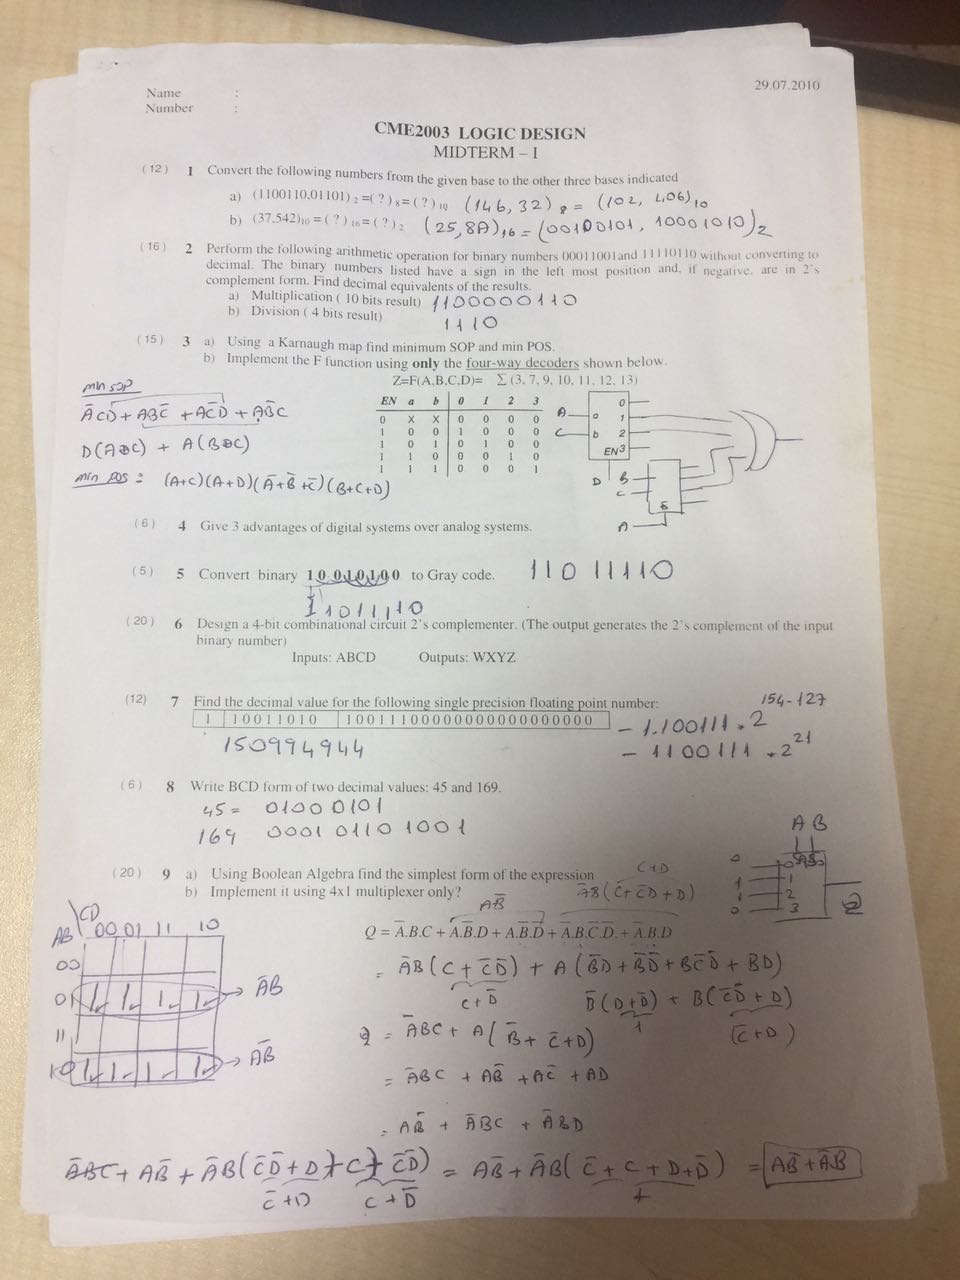 29.07.2010
Name :
Number :
CME2003 LOGIC DESIGN
MIDTERM – I
(12) 1 Convert the following numbers from the given base to the other three bases indicated
a) (1100110,01101)₂ =( ? )₈= ( ? )₁₀ (146, 32)₈ = (102, 406)₁₀
b) (37,542)₁₀ = ( ? )₁₆ = ( ? )₂ (25,8A)₁₆ = (00100101, 10001010)₂
(16) 2 Perform the following arithmetic operation for binary numbers 00011001and 11110110 without converting to
decimal. The binary numbers listed have a sign in the left most position and, if negative, are in 2's
complement form. Find decimal equivalents of the results.
a) Multiplication ( 10 bits result) 1100000110
b) Division ( 4 bits result) 1110
(15) 3 a) Using a Karnaugh map find minimum SOP and min POS.
b) Implement the F function using only the four-way decoders shown below.
Z=F(A,B,C,D)= Σ (3, 7, 9, 10, 11, 12, 13)
EN a b 0 1 2 3
0 X X 0 0 0 0
1 0 0 1 0 0 0
1 0 1 0 1 0 0
1 1 0 0 0 1 0
1 1 1 0 0 0 1
min SOP
A̅CD + ABC̅ + AC̅D + AB̅C
D(A⊕C) + A(B⊕C)
min POS : (A+C)(A+D)(A̅+B̅+C̅)(B+C+D)
A a 0
1
C b 2
EN 3
D B
C
A
(6) 4 Give 3 advantages of digital systems over analog systems.
(5) 5 Convert binary 10010100 to Gray code. 11011110
11011110
(20) 6 Design a 4-bit combinational circuit 2's complementer. (The output generates the 2's complement of the input
binary number)
Inputs: ABCD Outputs: WXYZ
(12) 7 Find the decimal value for the following single precision floating point number:
1 10011010 10011100000000000000000
154-127
- 1.100111 . 2
- 1100111 . 2²¹
150994944
(6) 8 Write BCD form of two decimal values: 45 and 169.
45 = 01000101
169 0001 0110 1001
(20) 9 a) Using Boolean Algebra find the simplest form of the expression
b) Implement it using 4x1 multiplexer only?
C+D
A̅B(C̅+C̅D+D)
AB̅
A B
0 0
1 1
1 2
0 3
Q
Q = A̅.B.C + A.B̅.D + A.B̅.D̅ + A̅.B.C̅.D̅ + A̅.B.D
= A̅B(C + C̅D̅) + A(B̅D + B̅D̅ + BC̅D̅ + BD)
C+D̅ B̅(D+D̅) + B(C̅D̅ + D)
1 (C̅+D)
Q = A̅BC + A(B̅ + C̅+D)
= A̅BC + AB̅ + AC̅ + AD
= AB̅ + A̅BC + A̅BD
CD
AB 00 01 11 10
00
01 1 1 1 1 → A̅B
11
10 1 1 1 1 → AB̅
A̅BC + AB̅ + A̅B(C̅D̅ + D + C + C̅D̅) = AB̅ + A̅B(C̅ + C + D + D̅) = AB̅ + A̅B
C̅+D C+D̅ 1